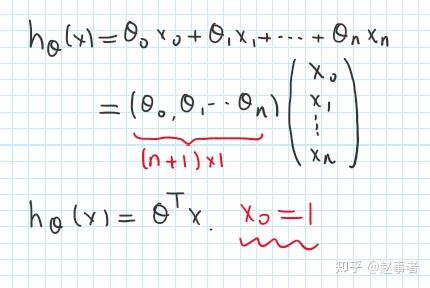 hθ(x) = θ₀x₀ + θ₁x₁ + ⋯ + θₙxₙ
= (θ₀, θ₁ ⋯ θₙ) (x₀ x₁ ⋮ xₙ)
(n+1)×1
hθ(x) = θᵀx. x₀ = 1
知乎 @赵事者